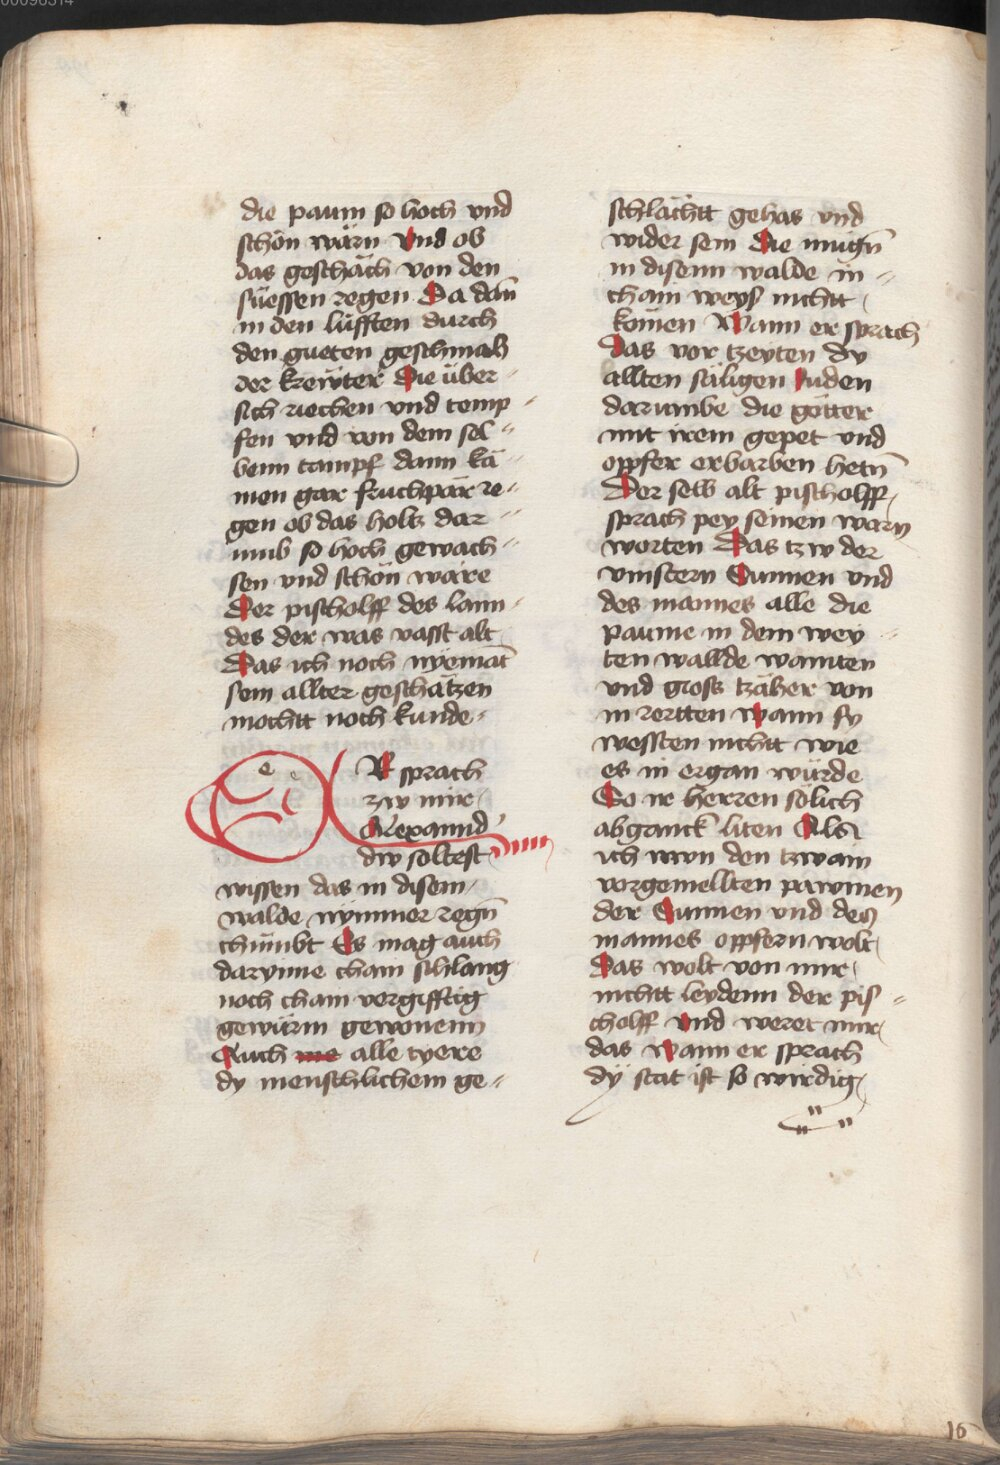 die paum so hoch vnd
schön wärn Vnd ob
das geschäch von den
süessen regen Da dan̄
in den lüfften durch
den gueten geschmah
der krewter Die über
sich riechen vnd temp
fen vnd von dem sel
benn tampf dann kä
men gar fruchpär re
gen ob das holtz dar
umb so hoch gewach
sen vnd schön wäre
Der pischolff des lann
des der was vasst alt
Das ich noch nyemāt
sein allter geschätzen
mochtt noch kunde
e
ER sprach
zw mir
Alexannd'
dw soltest
wissen das in disem
walde nymmer regn̄
chümbt Es mag auch
darynne chain schlang
noch chain vergifftig
gewürm gewonenn
Auch alle tyere
dy menschlichem ge
schlächtt gehas vnd
wider sein Die mugn̄
in disenn walde in
chain weys nichtt
komen Wann er sprach
Das vor tzeyten dy
allten säligen Juden
darumbe die götter
mit irem gepet vnd
oppfer erbarben hetn̄
Der selb alt pischolff
sprach pey seinen warn
worten Das tzw der
vinstern Sunnen vnd
des mannes alle die
paume in dem wey
ten wallde wainten
vnd gross tzäher von
in rertten Wann sy
wessten nichtt wie
es in ergan würde
So ir herren sölich
abganck liten Als
ich nun den tzwain
vorgemellten pawmen
der Sunnen vnd des
mannes oppfern wolt
Das wolt von mir
nichtt leydenn der pis
cholff Vnd weret mir
das Wann er sprach
dÿ stat ist so wirdig
16